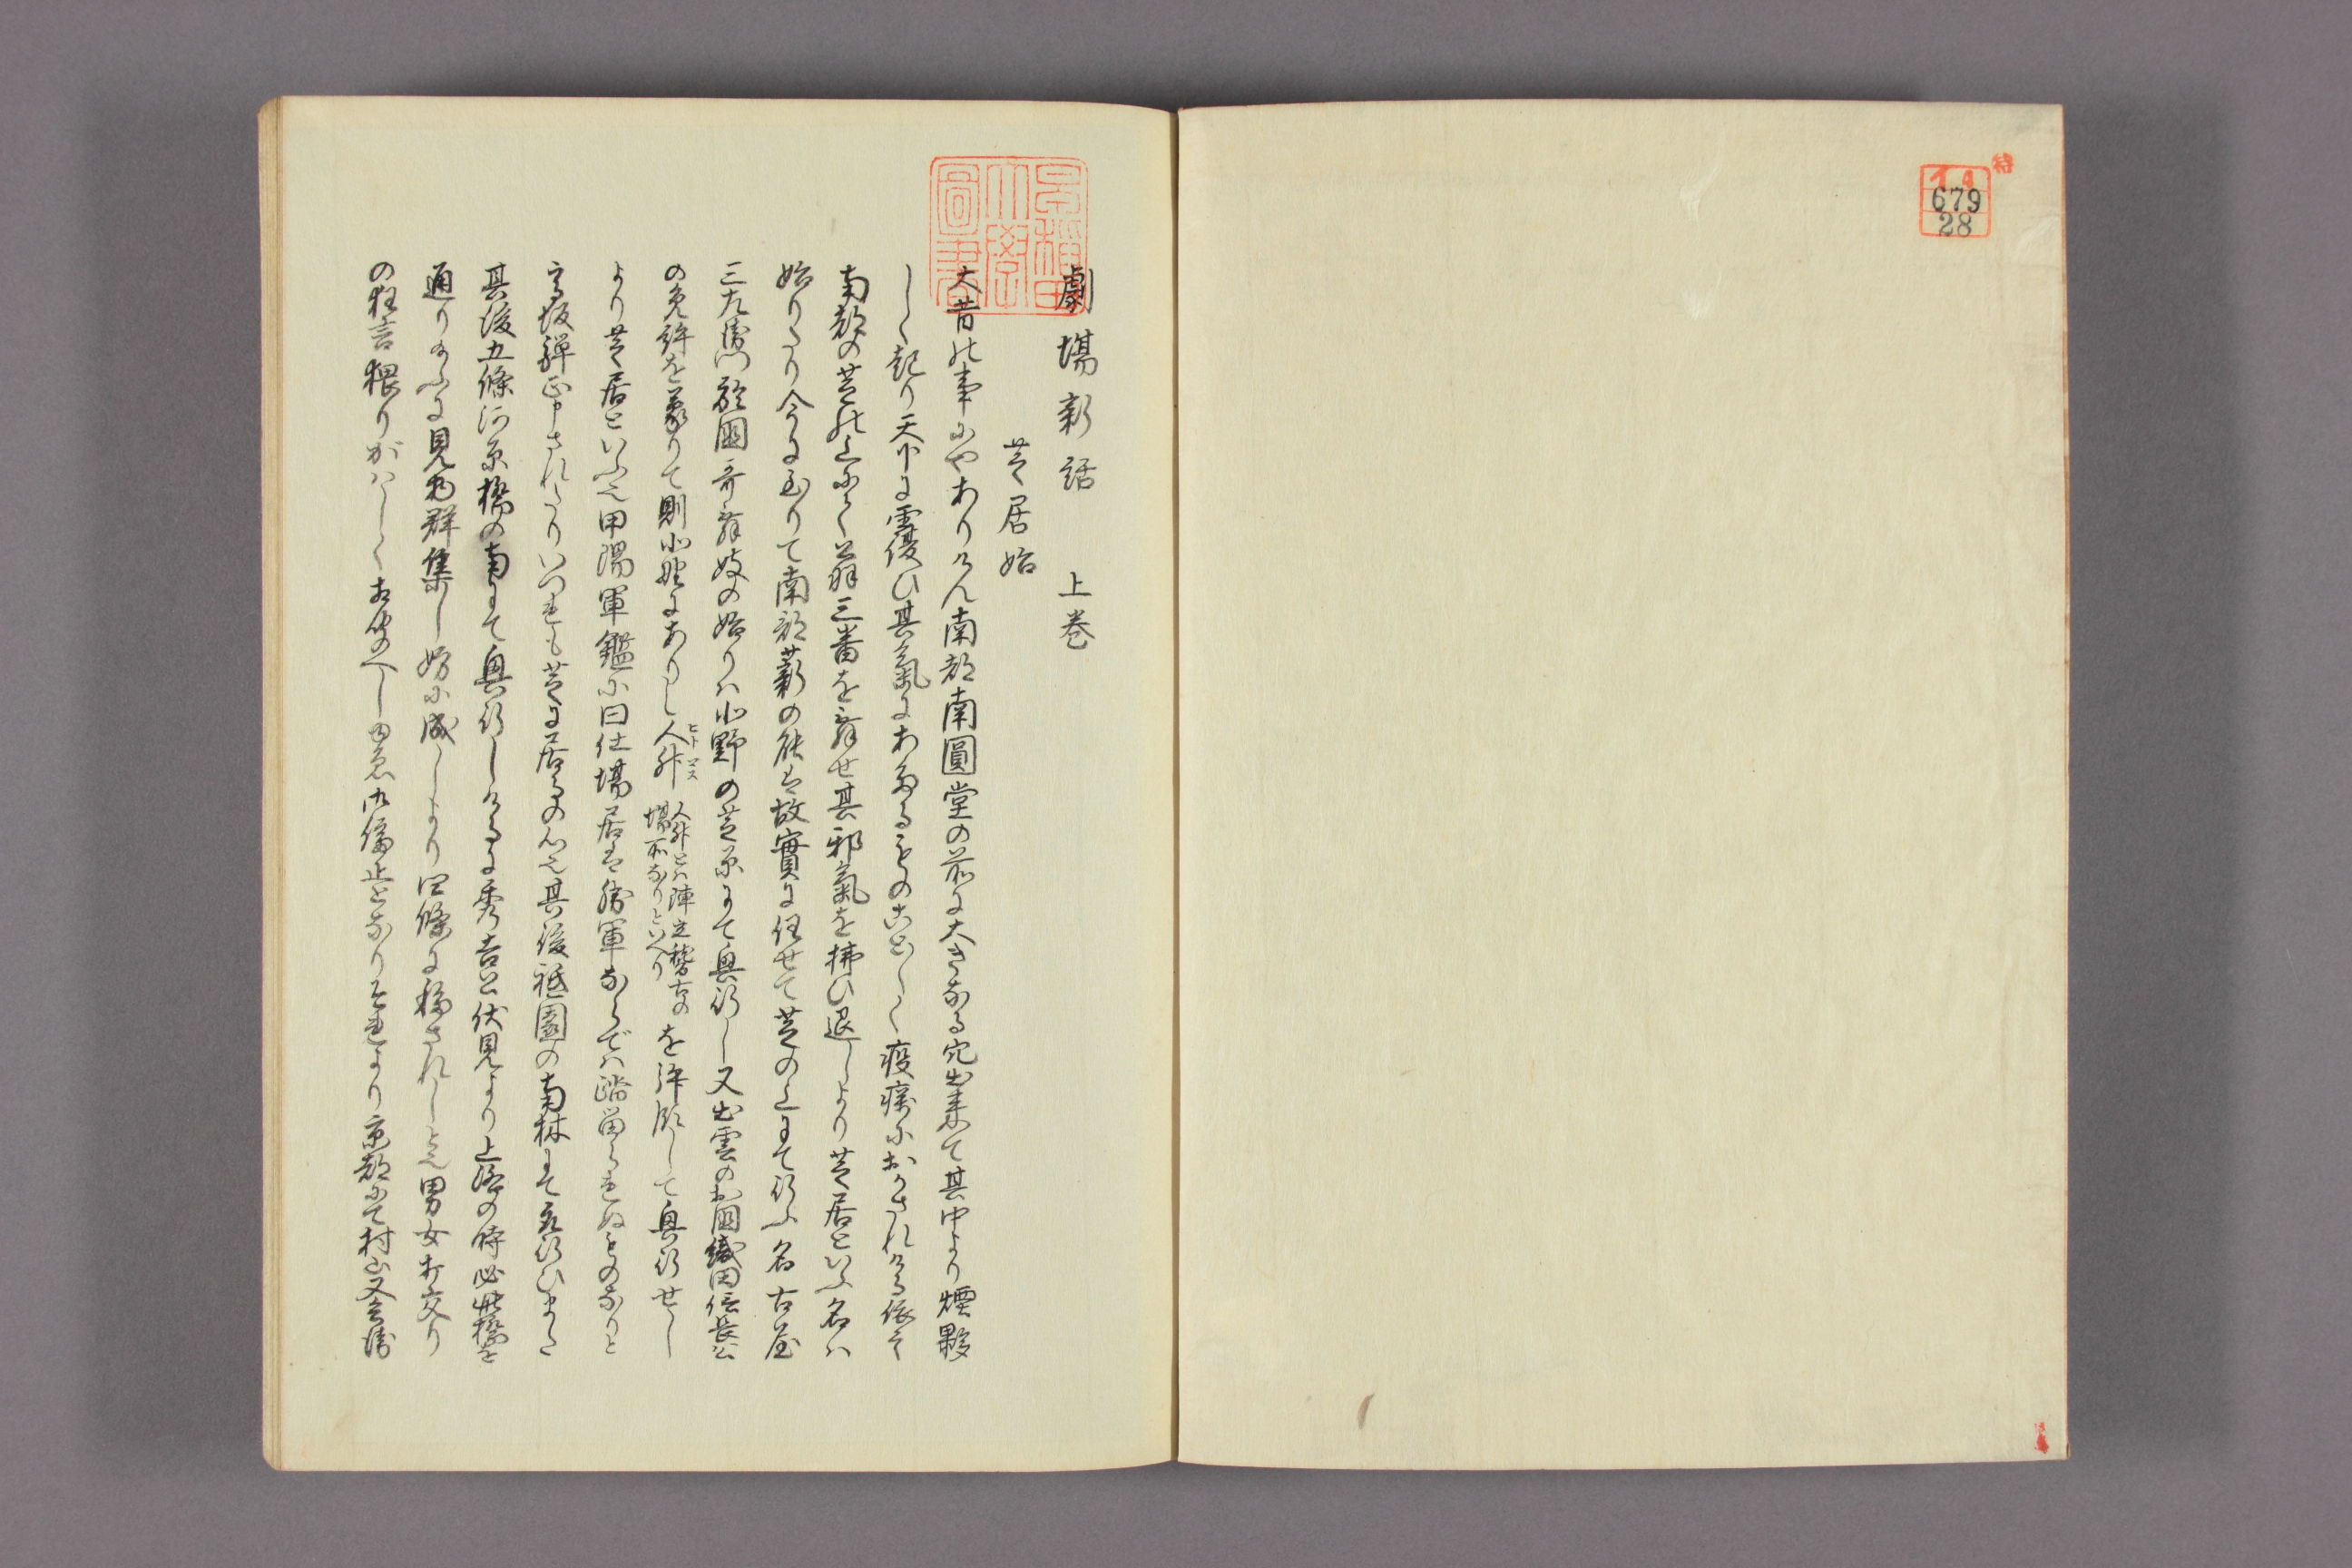 特
イ4
679
28
早稲田大學圖書
劇場新話 上巻
芝居始
大昔の事にやありけん南都南圓堂の前に大きなる穴出来て其中より煙夥
しく起り天下に覆ひ其氣にあたるものことごとく疫癘におかされける依之
南都の芝の上にて翁三番を舞せ其邪氣を拂ひ退しより芝居といふ名ハ
始りたり今に至りて南都薪の能は故實に任せて芝の上にて行ふ名古屋
三左衛門於國哥舞妓の始りハ北野の芝原にて興行し又出雲のお國織田信長公
の免許を蒙りて則北野にありし人舛 人舛とハ陣立稽古の場所なりといへり を拝借して興行せし
ヒトマス
より芝居といふ也甲陽軍鑑に曰仕場居は勝軍ならでハ踏留られぬものなりと
高坂弾正申されたりいつれも芝に居るの心也其後祇園の南林にて
其後五條河原橋の南にて興行しけるに秀吉公伏見より上洛の時必此橋を
通り給ふに見物群集し妨に成しより四條に移されしと也男女打交り
の狂言猥りがハしく相聞へしゆゑ御停止となりそれより京都にて村山又兵衛